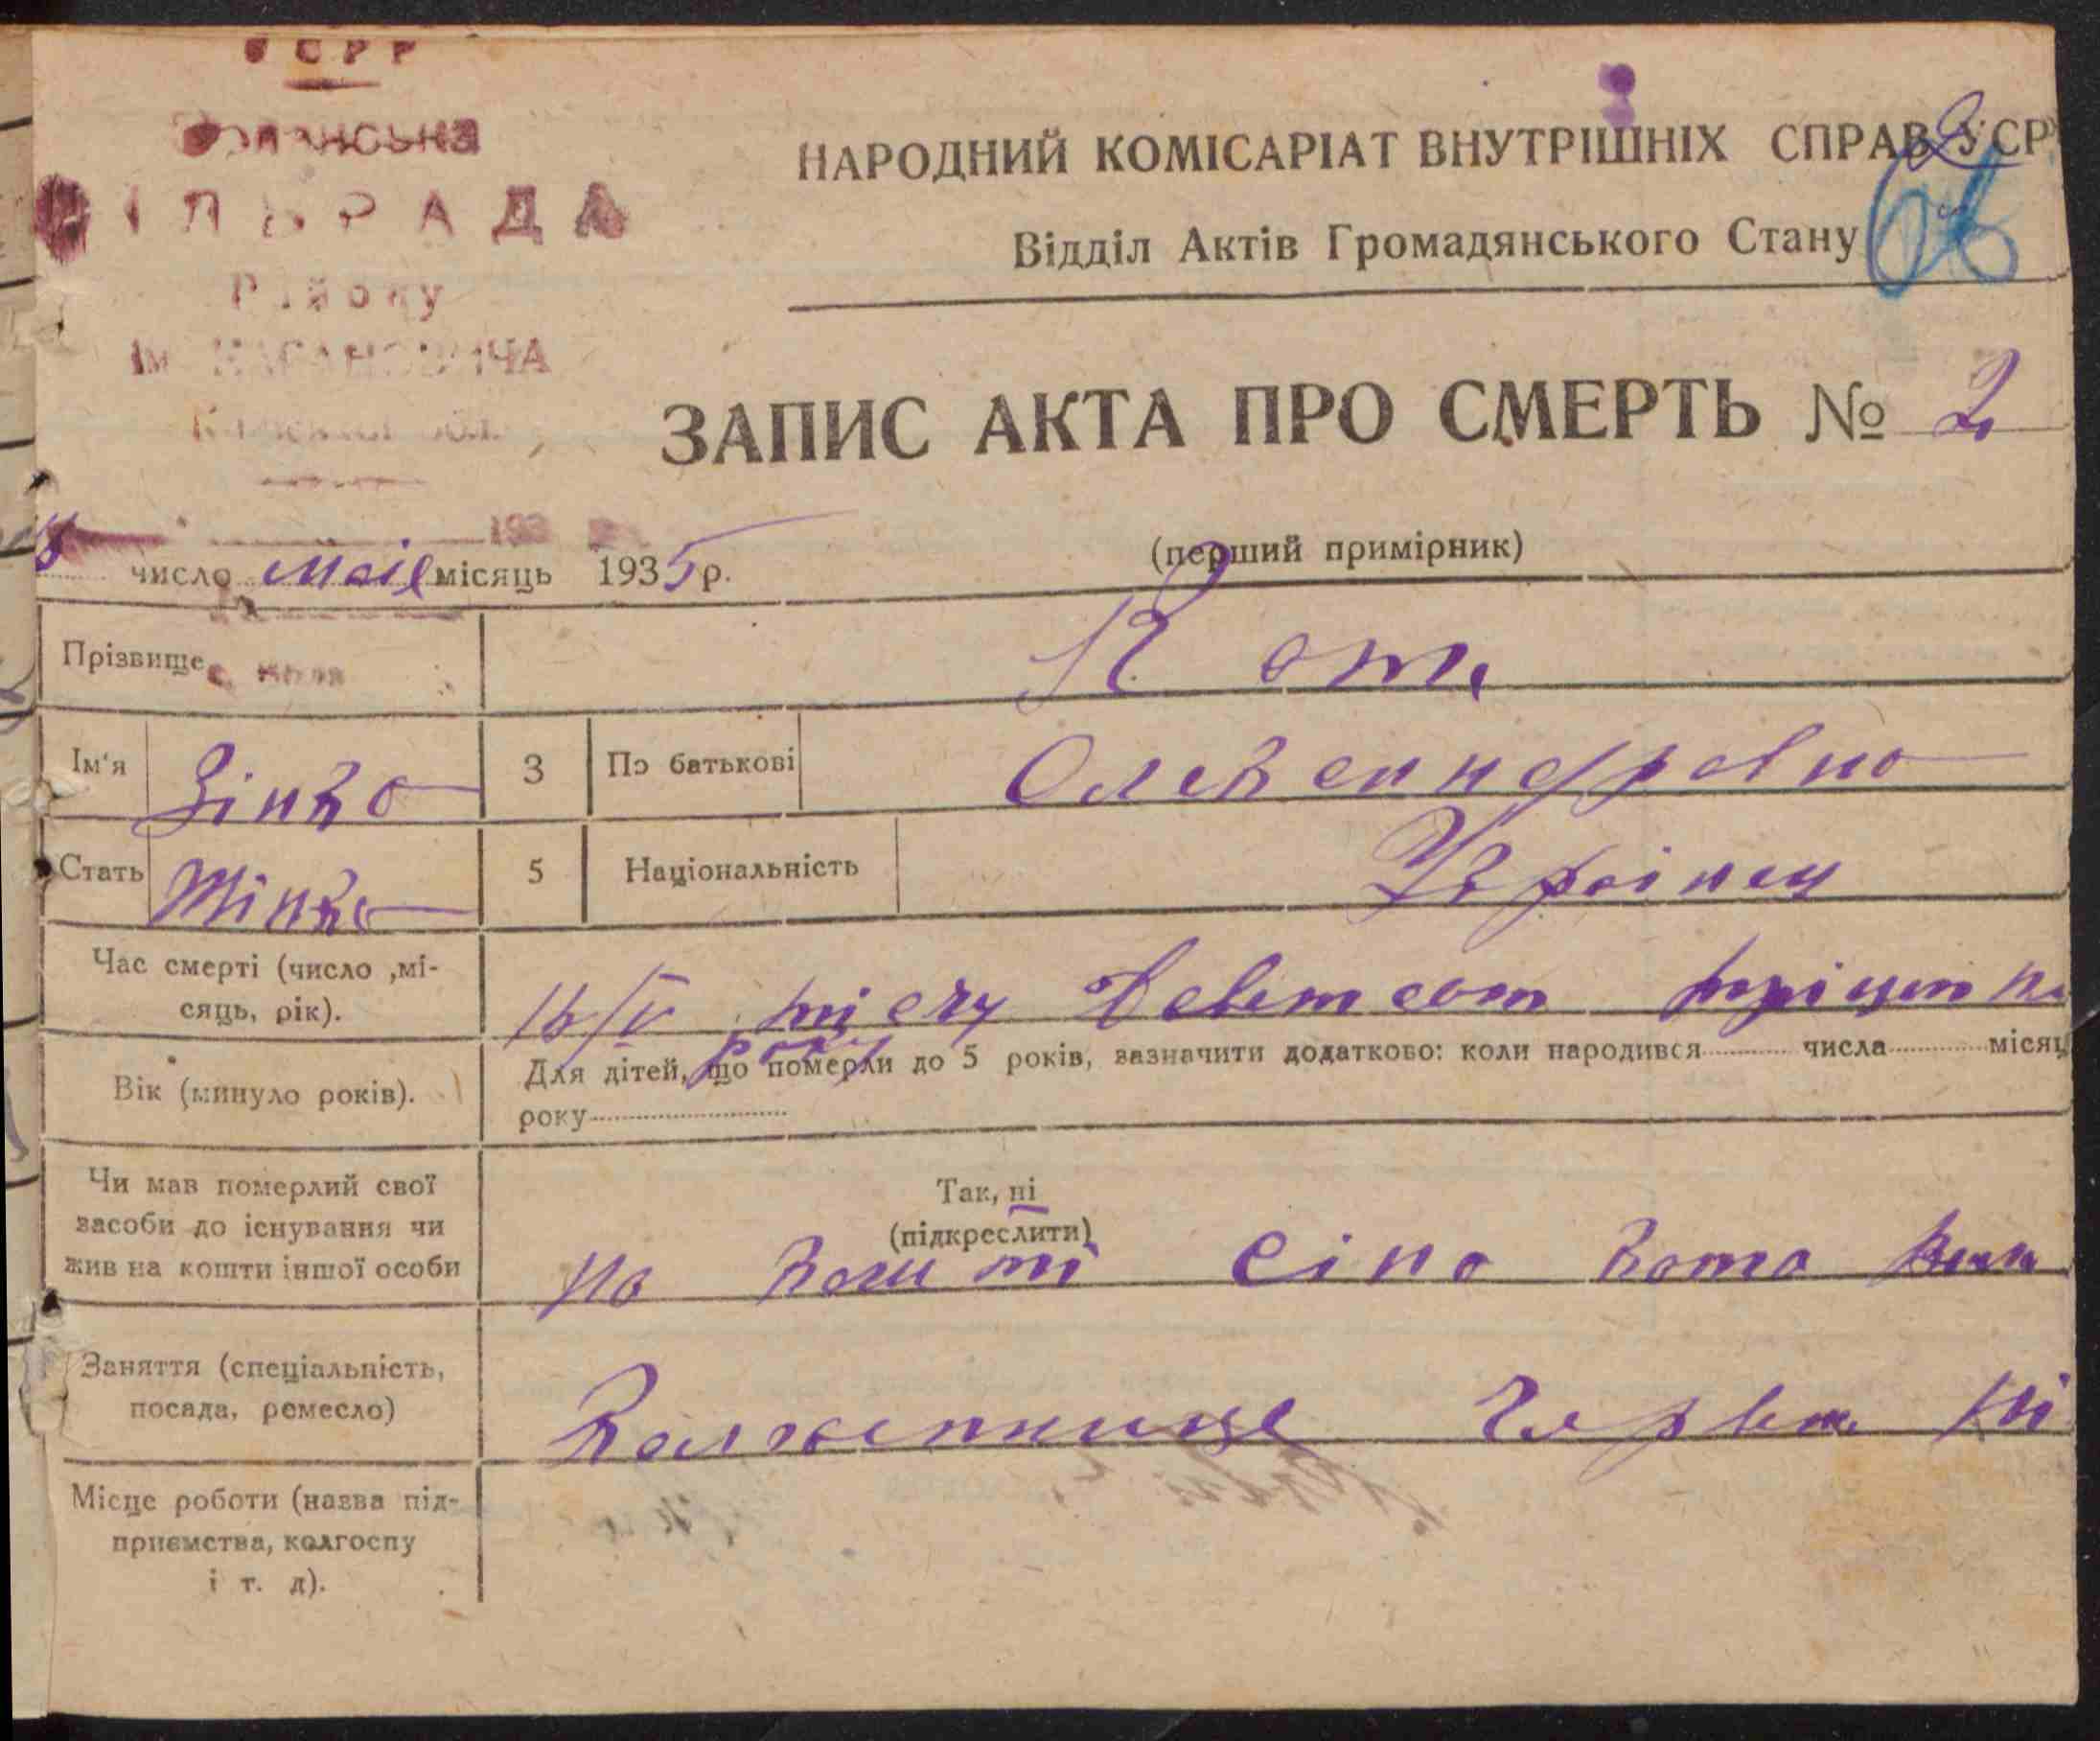 УСРР
ІЛЬРАДА
Району
Ім. КАГАНОВИЧА
НАРОДНИЙ КОМІСАРІАТ ВНУТРІШНІХ СПРАВ УСР
Відділ Актів Громадянського Стану
ЗАПИС АКТА ПРО СМЕРТЬ № 2
(перший примірник)
число мая місяць 1935 р.
Прізвище Кот
Ім'я Зінко 3 По батькові Олександровно
Стать Жінко 5 Національність Українец
Час смерті (число ,мі-
сяць, рік).
16/V тисяч Девятсот трицит
року
Вік (минуло років).
Для дітей, що померли до 5 років, зазначити додатково: коли народився числа місяц
року
Чи мав померлий свої
засоби до існування чи
жив на кошти іншої особи
Так, ні
(підкреслити)
на кошті сіна Кота
Заняття (спеціальність,
посада, ремесло)
Місце роботи (назва під-
приємства, колгоспу
і т. д).